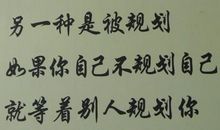 另一种是被规划
如果你自己不规划自己
就等着别人规划你